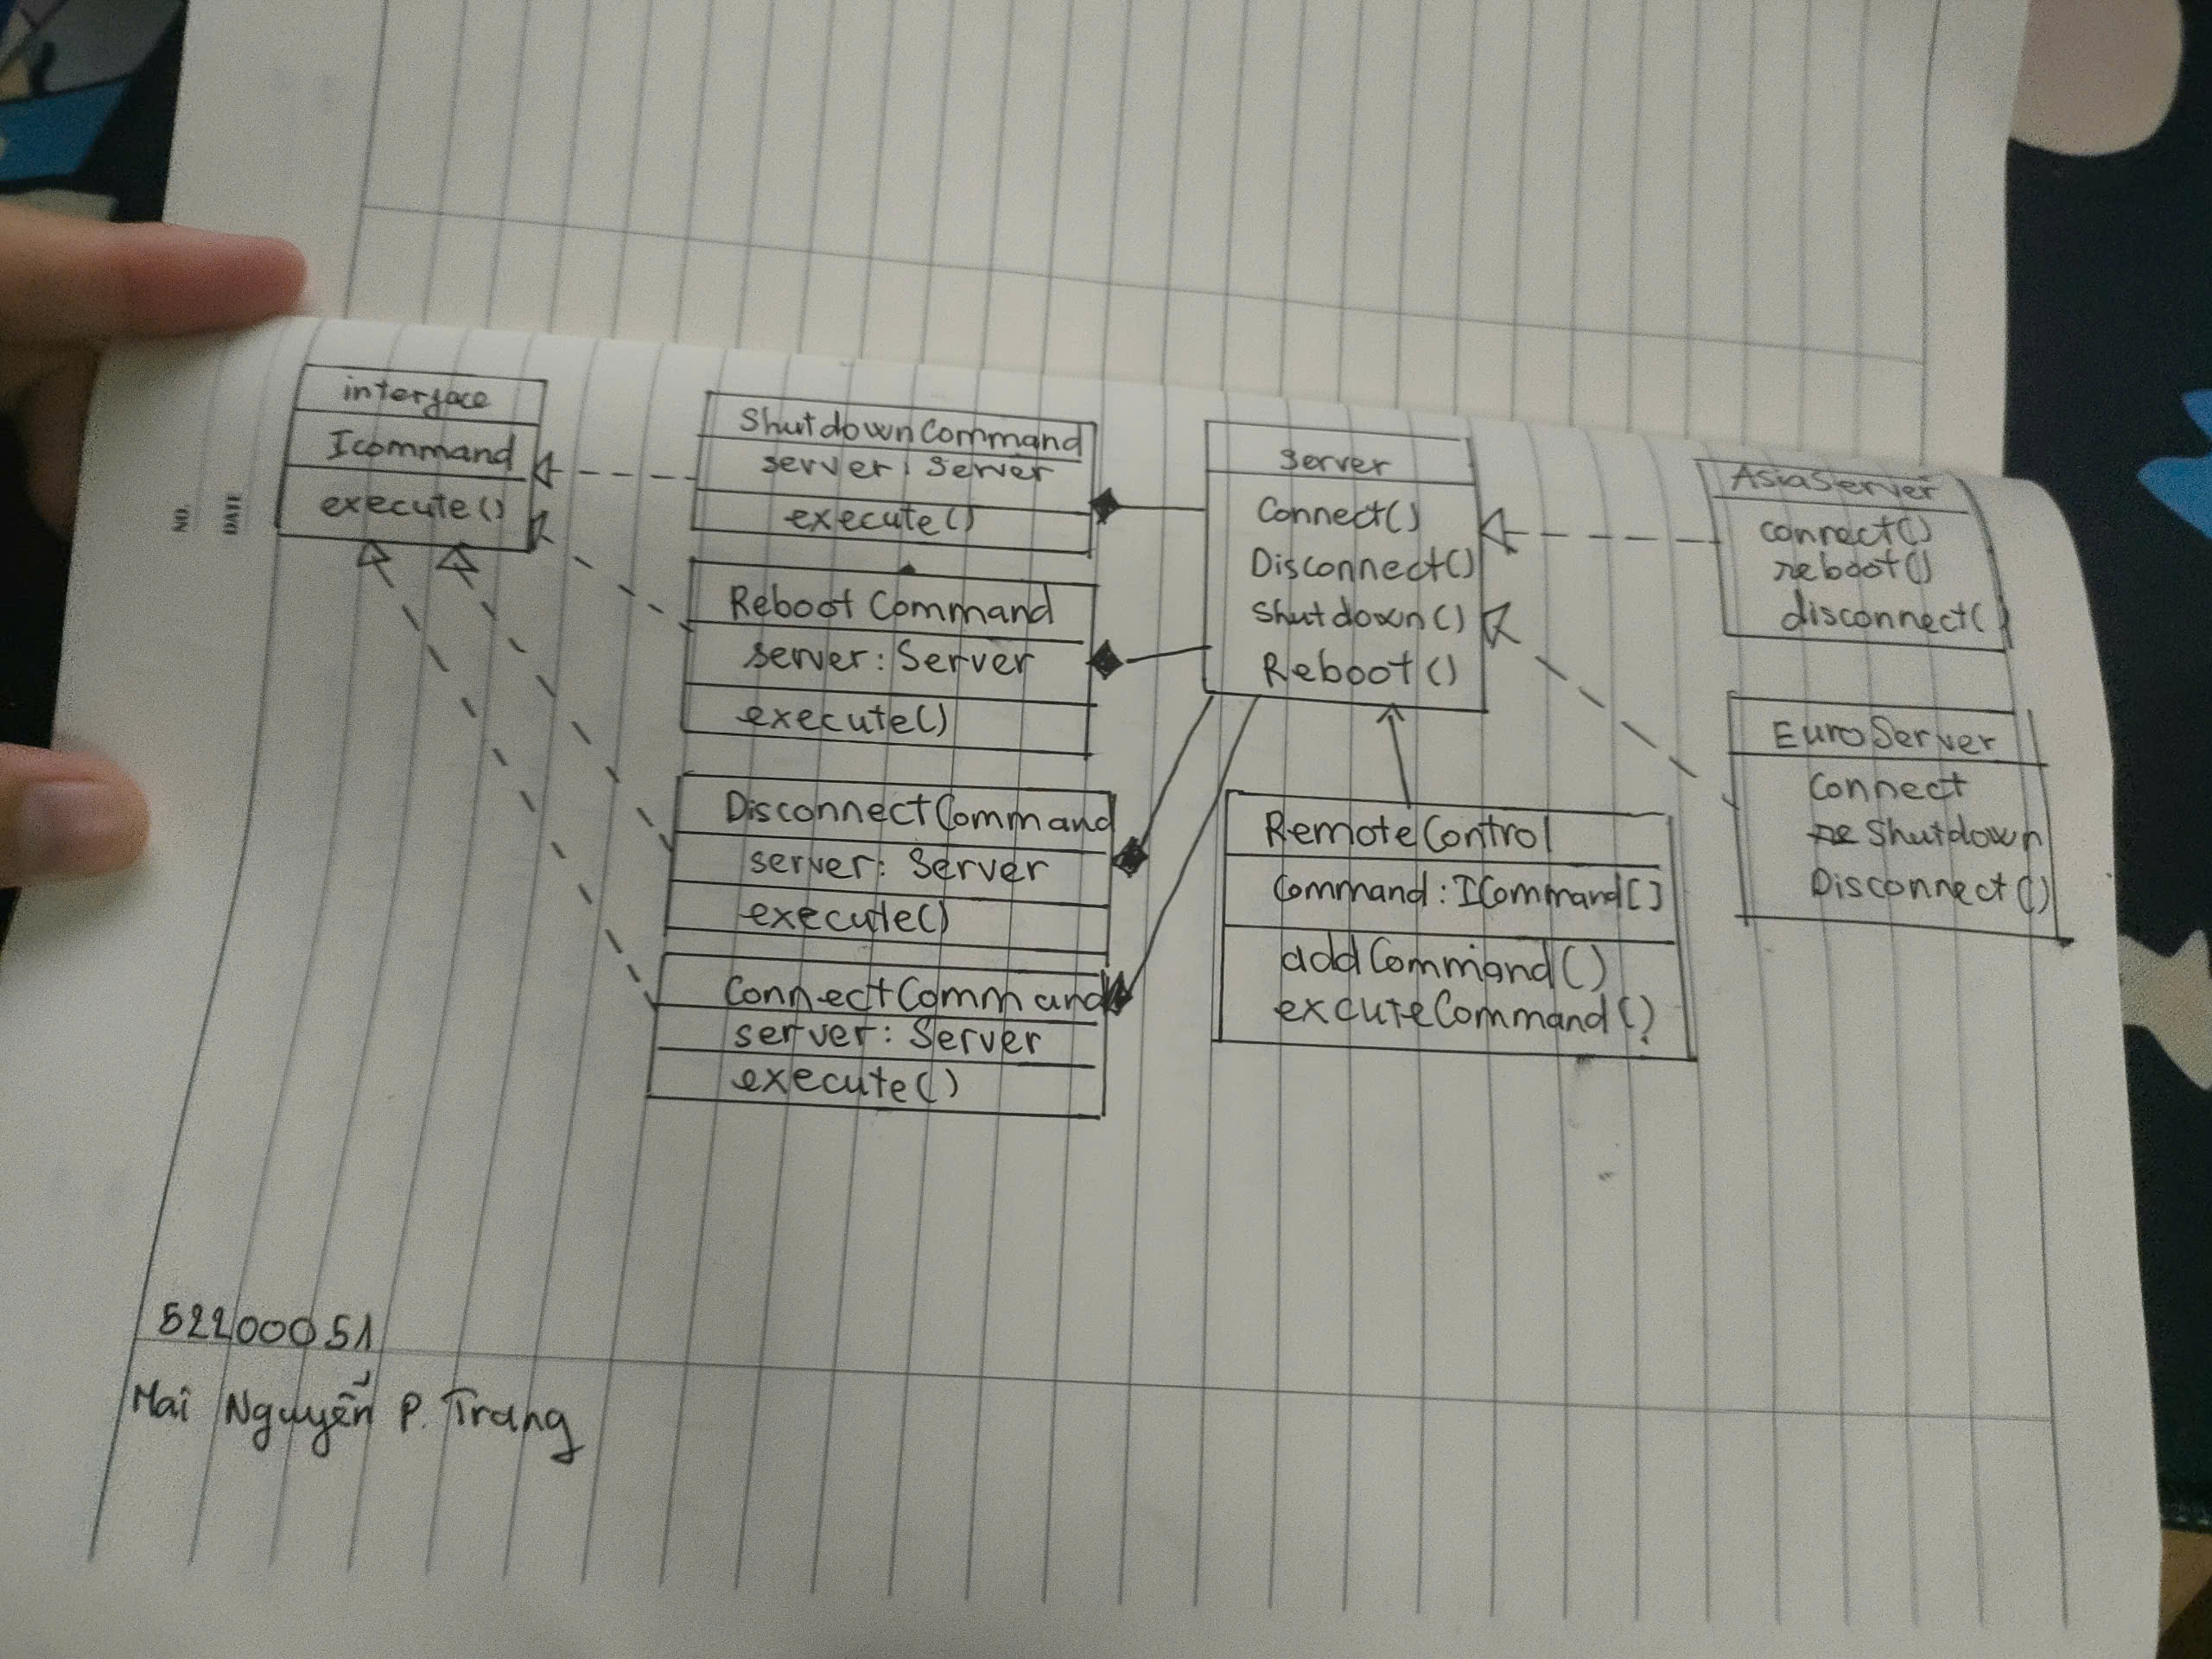 NO.
DATE
interface
Icommand
execute()
ShutdownCommand
server: Server
execute()
Reboot Command
server: Server
execute()
DisconnectCommand
server: Server
execute()
ConnectCommand
server: Server
execute()
server
Connect()
Disconnect()
Shutdown()
Reboot()
RemoteControl
Command: ICommand[]
addCommand()
excuteCommand()
AsiaServer
connect()
reboot()
disconnect()
EuroServer
Connect
re Shutdown
Disconnect()
52200051
Mai Nguyễn P. Trang